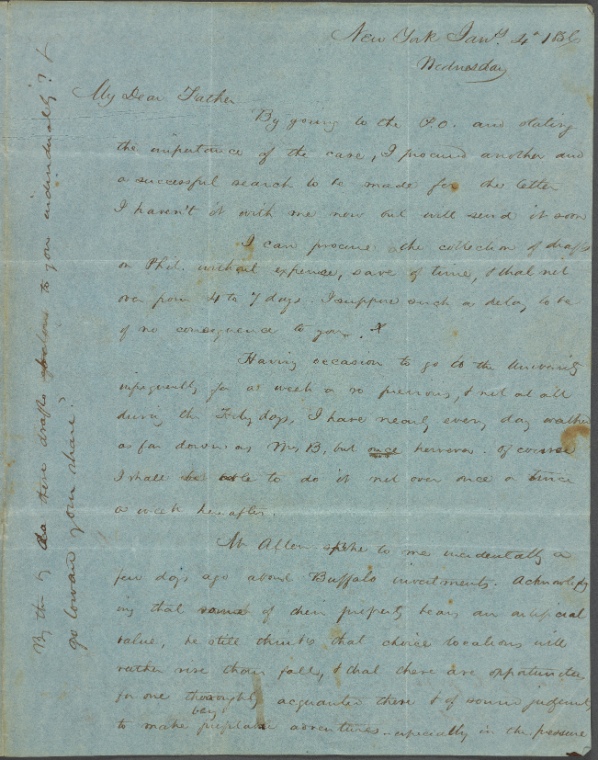 New York Jany. 4th
Wednesday
My Dear Father
By going to the P.O. and stating
the importance of the case, I procured another and
a successful search to be made for the letter
I haven't it with me now but will send it soon
I can procure the collection of drafts
on Phil. without expense, save of time, & that not
over from 4 to 7 days. I suppose such a delay to be
of no consequence to you. X
Having occasion to go to the University
infrequently for a week or so previous, & not at all
during the Holydays, I have nearly every day walked
as far down as Mr B, but once however. Of course
I shall to do it not over once or twice
a week hereafter.
Mr Allen spoke to me incidentally a
few days ago about Buffalo investments. Acknowledg
ing that some of their property bears an artificial
value, he still thinks that choice locations will
rather rise than fall, & that there are opportunities
for one thoroughly acquainted there & of sound judgment
to make adventures especially in the pressure
By the these drafts to you individually? &
go toward your share?